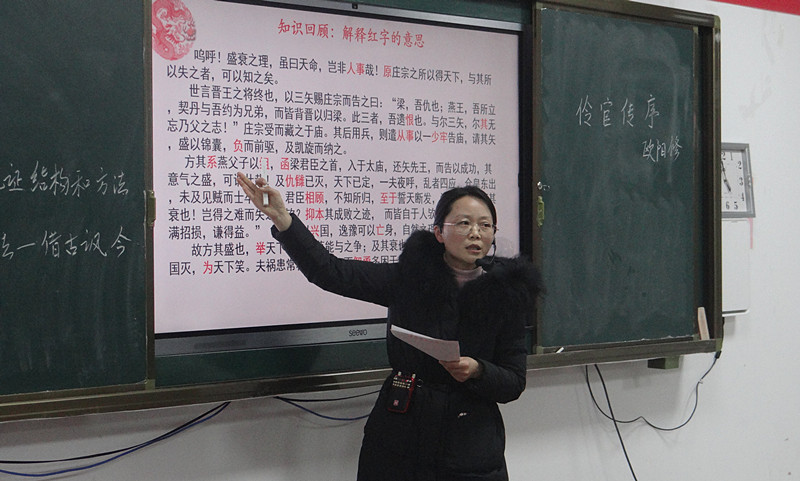 知识回顾：解释红字的意思
呜呼！盛衰之理，虽曰天命，岂非人事哉！原庄宗之所以得天下，与其所
以失之者，可以知之矣。
世言晋王之将终也，以三矢赐庄宗而告之曰：“梁，吾仇也；燕王，吾所立
，契丹与吾约为兄弟，而皆背晋以归梁。此三者，吾遗恨也。与尔三矢，尔其无
忘乃父之志！”庄宗受而藏之于庙。其后用兵，则遣从事以一少牢告庙，请其矢
，盛以锦囊，负而前驱，及凯旋而纳之。
方其系燕父子以 ，函梁君臣之首，入于太庙，还矢先王，而告以成功，其
意气之盛，可谓 ！及仇雠已灭，天下已定，一夫夜呼，乱者四应，仓皇东出
，未及见贼而士 君臣相顾，不知所归，至于誓天断发，
衰也！岂得之难而失 抑本其成败之迹， 而皆自于人
满招损，谦得益。” 兴国，逸豫可以亡身，自然之
故方其盛也，举天下 能与之争；及其衰也
国灭，为天下笑。夫祸患常
seewo
伶官传序
欧阳修
结构和方法
一借古讽今